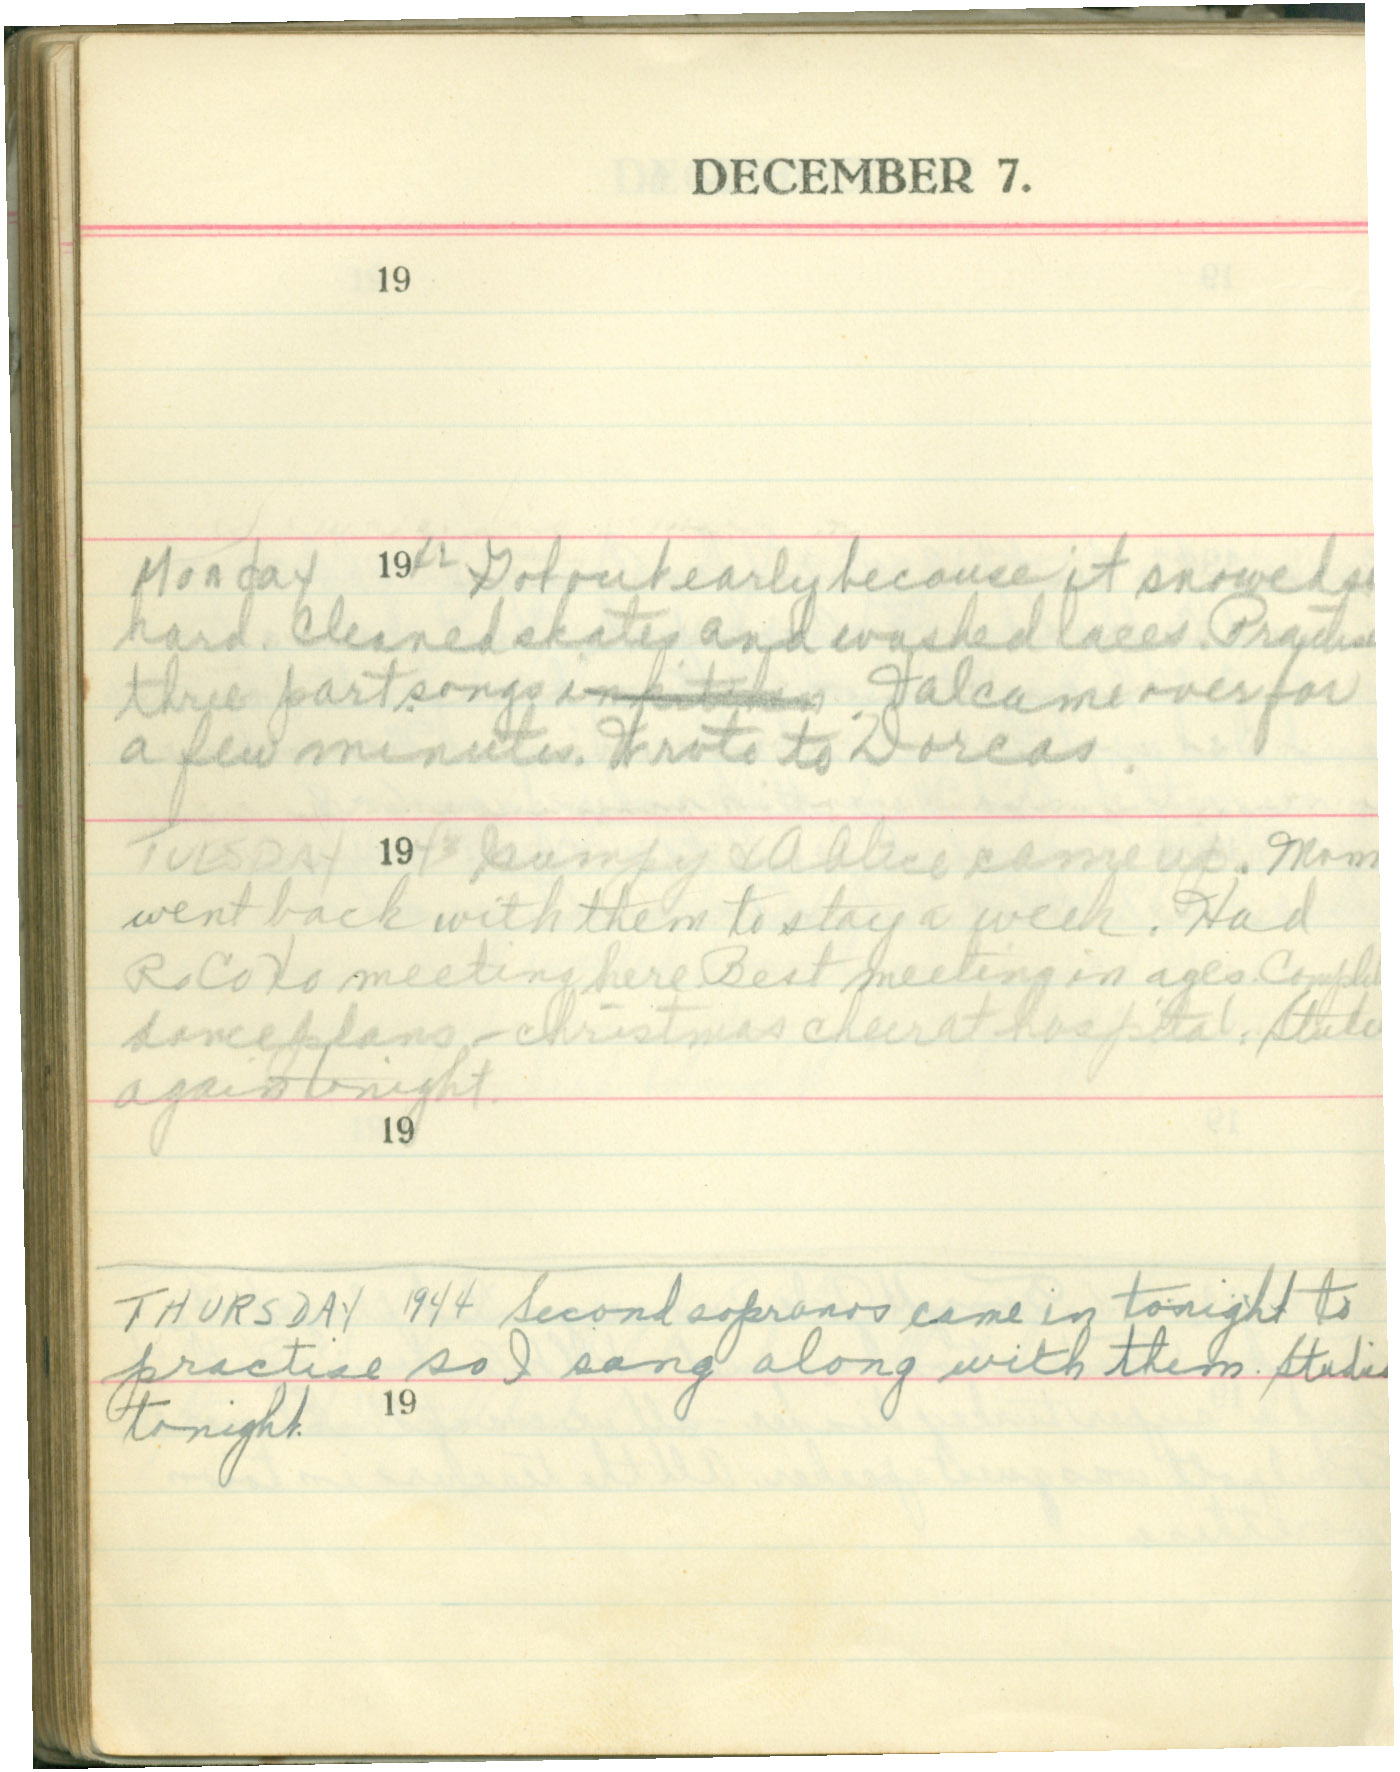 DECEMBER 7.
19
Monday 1942 Got out early because it snowed so
hard. Cleaned skates and washed laces. Practise
three part songs in kitchen. Hal came over for
a few minutes. Wrote to Dorcas.
TUESDAY 1943 Gumpy & Alice came up. Mom
went back with them to stay a week. Had
RoCoTo meeting here Best meeting in ages. Complet
dance plans - christmas cheer at hospital.
again tonight.
19
THURSDAY 1944 Second sopranos came in tonight to
practise so I sang along with them. Studie
tonight.
19